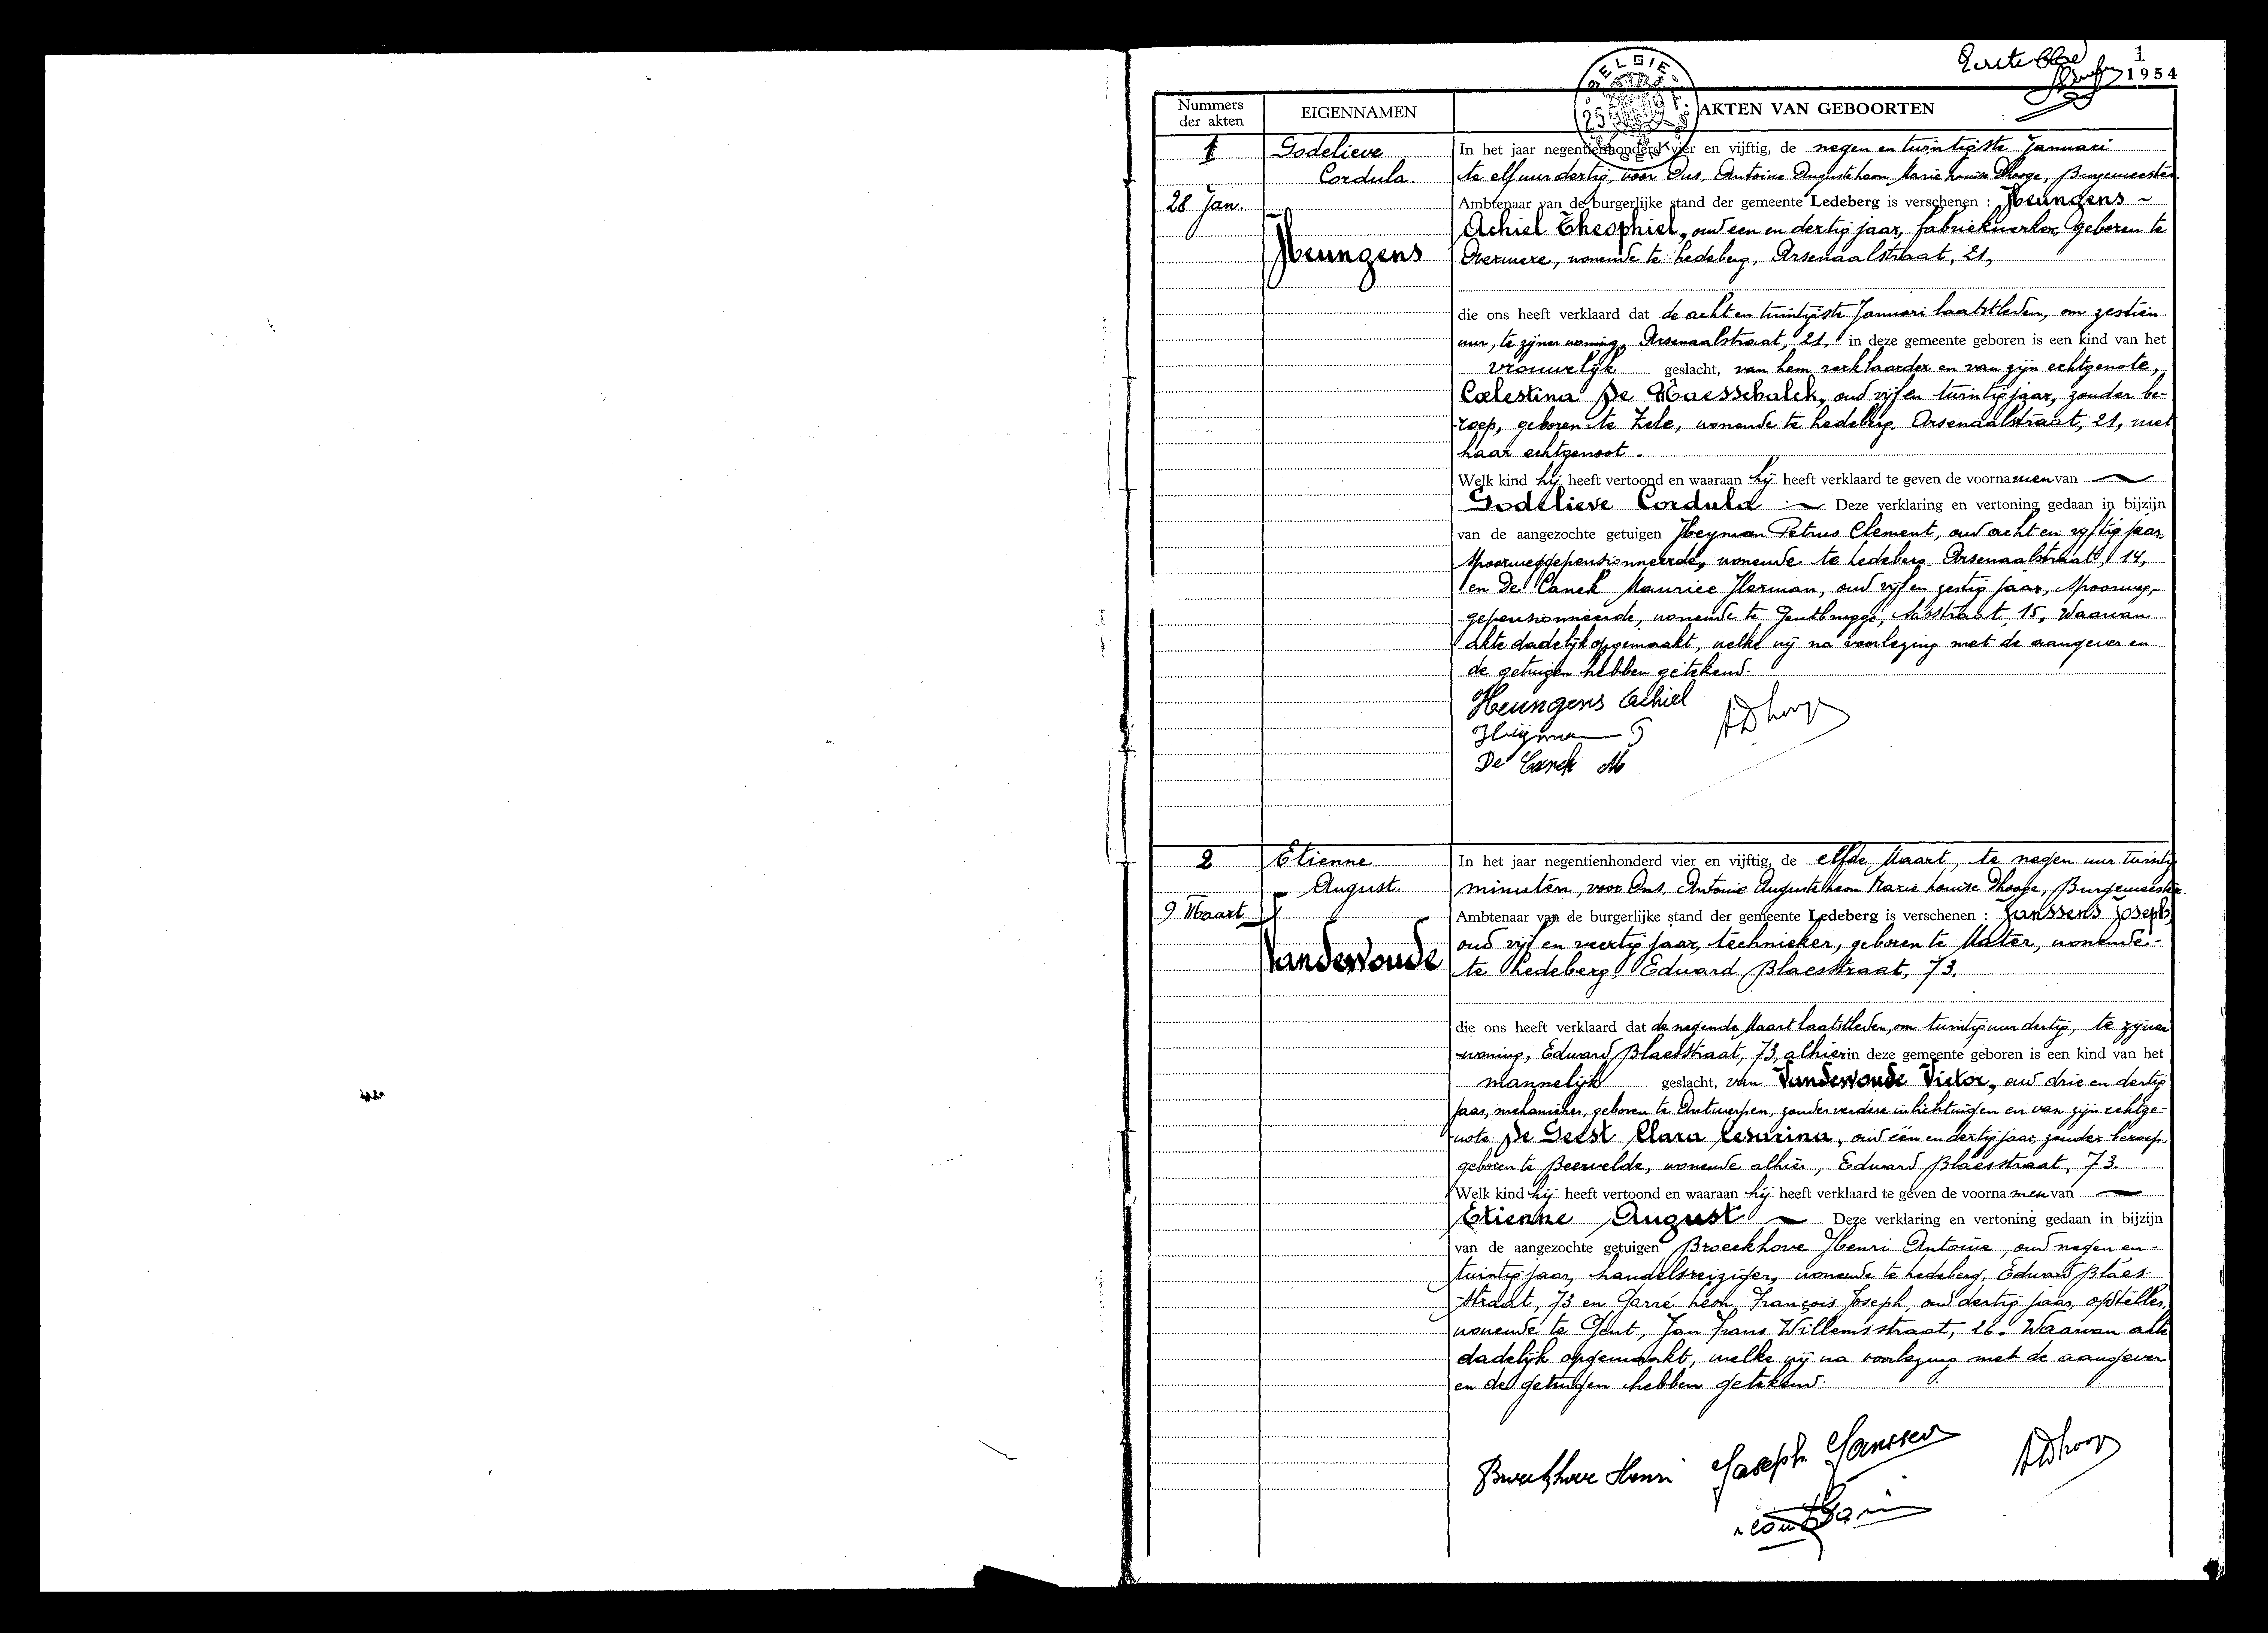 Eerste blad 1
1954
BELGIE
Nummers der akten
EIGENNAMEN
AKTEN VAN GEBOORTEN
1
28 Jan.
Godelieve
Cordula
Heungens
In het jaar negentienhonderd vier en vijftig, de negen en twintigste Januari
te elf uur dertig, voor Ons, Antoine Auguste Leon Marie Louise Dhooge, Burgemeester
Ambtenaar van de burgerlijke stand der gemeente Ledeberg is verschenen : Heungens ~
Achiel Theophiel, oud een en dertig jaar, fabriekwerker, geboren te
Overmere, wonende te Ledeberg, Arsenaalstraat, 21,
die ons heeft verklaard dat de acht en twintigste Januari laatstleden, om zestien
uur, te zijner woning, Arsenaalstraat, 21, in deze gemeente geboren is een kind van het
vrouwelijk geslacht, van hem verklaarder en van zijn echtgenote,
Cœlestina De Maesschalck, oud vijf en twintig jaar, zonder be-
roep, geboren te Zele, wonende te Ledeberg, Arsenaalstraat, 21, met
haar echtgenoot.
Welk kind hij heeft vertoond en waaraan hij heeft verklaard te geven de voornamen van ~
Godelieve Cordula ~ Deze verklaring en vertoning gedaan in bijzijn
van de aangezochte getuigen Heyman Petrus Clement, oud acht en vijftig jaar,
spoorweggepensionneerde, wonende te Ledeberg, Arsenaalstraat, 14,
en De Canck Maurice Herman, oud vijf en zestig jaar, spoorweg-
gepensionneerde, wonende te Gentbrugge, Asstraat, 15. Waarvan
akte dadelijk opgemaakt, welke wij na voorlezing met de aangever en
de getuigen hebben getekend.
Heungens Achiel
ADhooge
Heyman P
De Canck M
2
9 Maart
Etienne
August.
Vandewoude
In het jaar negentienhonderd vier en vijftig, de elfde Maart, te negen uur twintig
minuten, voor Ons, Antoine Auguste Leon Marie Louise Dhooge, Burgemeester
Ambtenaar van de burgerlijke stand der gemeente Ledeberg is verschenen : Janssens Joseph,
oud vijf en veertig jaar, technieker, geboren te Mater, wonende -
te Ledeberg, Eduard Blaesstraat, 73.
die ons heeft verklaard dat de negende Maart laatstleden, om twintig uur dertig, te zijner
woning, Eduard Blaesstraat, 73, alhier in deze gemeente geboren is een kind van het
mannelijk geslacht, van Vandewoude Victor, oud drie en dertig
jaar, mekanieker, geboren te Antwerpen, zonder verdere inlichtingen en van zijn echtge-
note De Geest Clara Cesarina, oud één en dertig jaar, zonder beroep,
geboren te Beervelde, wonende alhier, Eduard Blaesstraat, 73.
Welk kind hij heeft vertoond en waaraan hij heeft verklaard te geven de voornamen van ~
Etienne August ~ Deze verklaring en vertoning gedaan in bijzijn
van de aangezochte getuigen Broeckhove Henri Antoine, oud negen en -
twintig jaar, handelsreiziger, wonende te Ledeberg, Eduard Blaes-
straat, 73 en Garré Leon François Joseph, oud dertig jaar, opsteller,
wonende te Gent, Jan Frans Willemsstraat, 26. Waarvan akte
dadelijk opgemaakt, welke wij na voorlezing met de aangever
en de getuigen hebben getekend.
Broeckhove Henri Joseph Janssens ADhooge